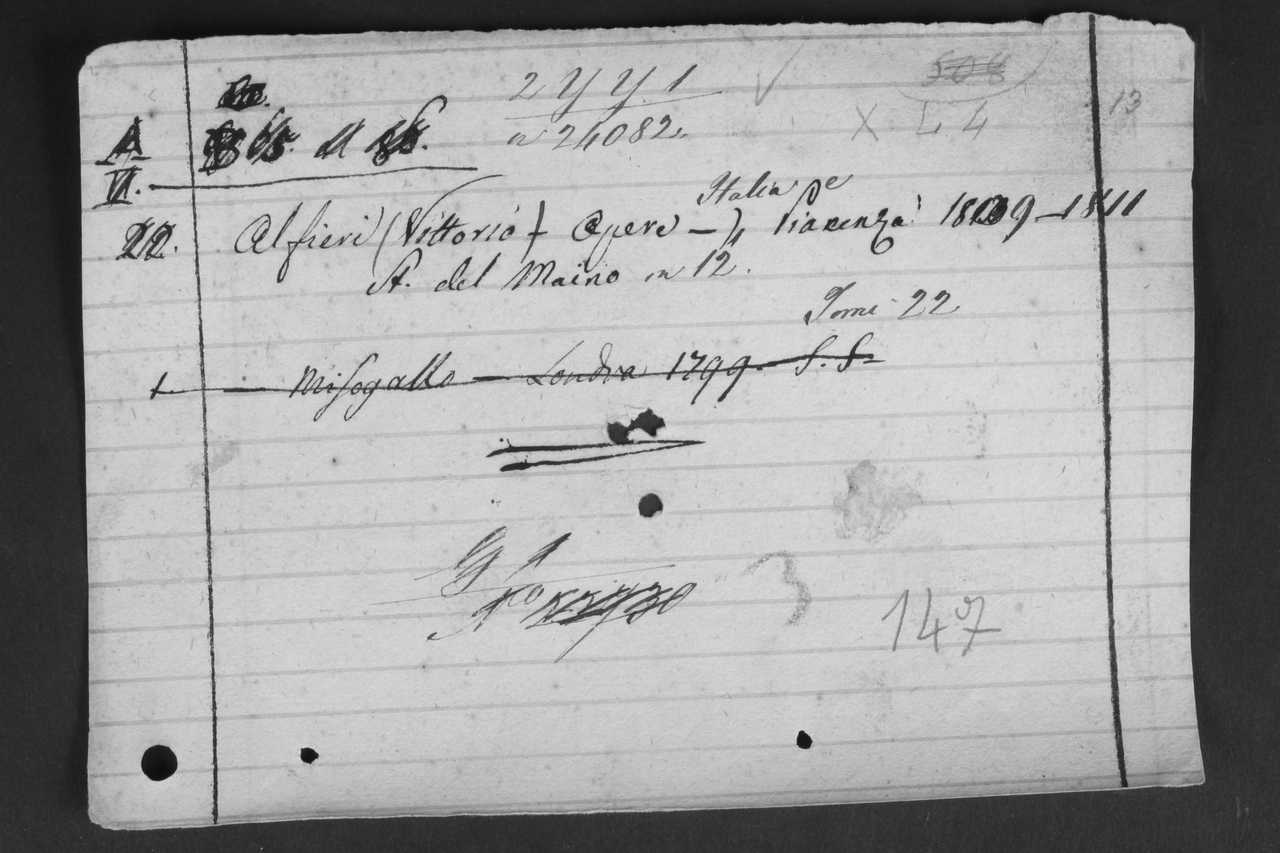 2 Y Y 1
508
n 24082.
X. L 4
13
A
VI.
22.
Italia ne
Alfieri (Vittorio) Opere — Piacenza 1809—1811
A. del Maino in 12.
Tomi 22
1 — Misogallo — Londra 1799. S. S.
G 1
3
147